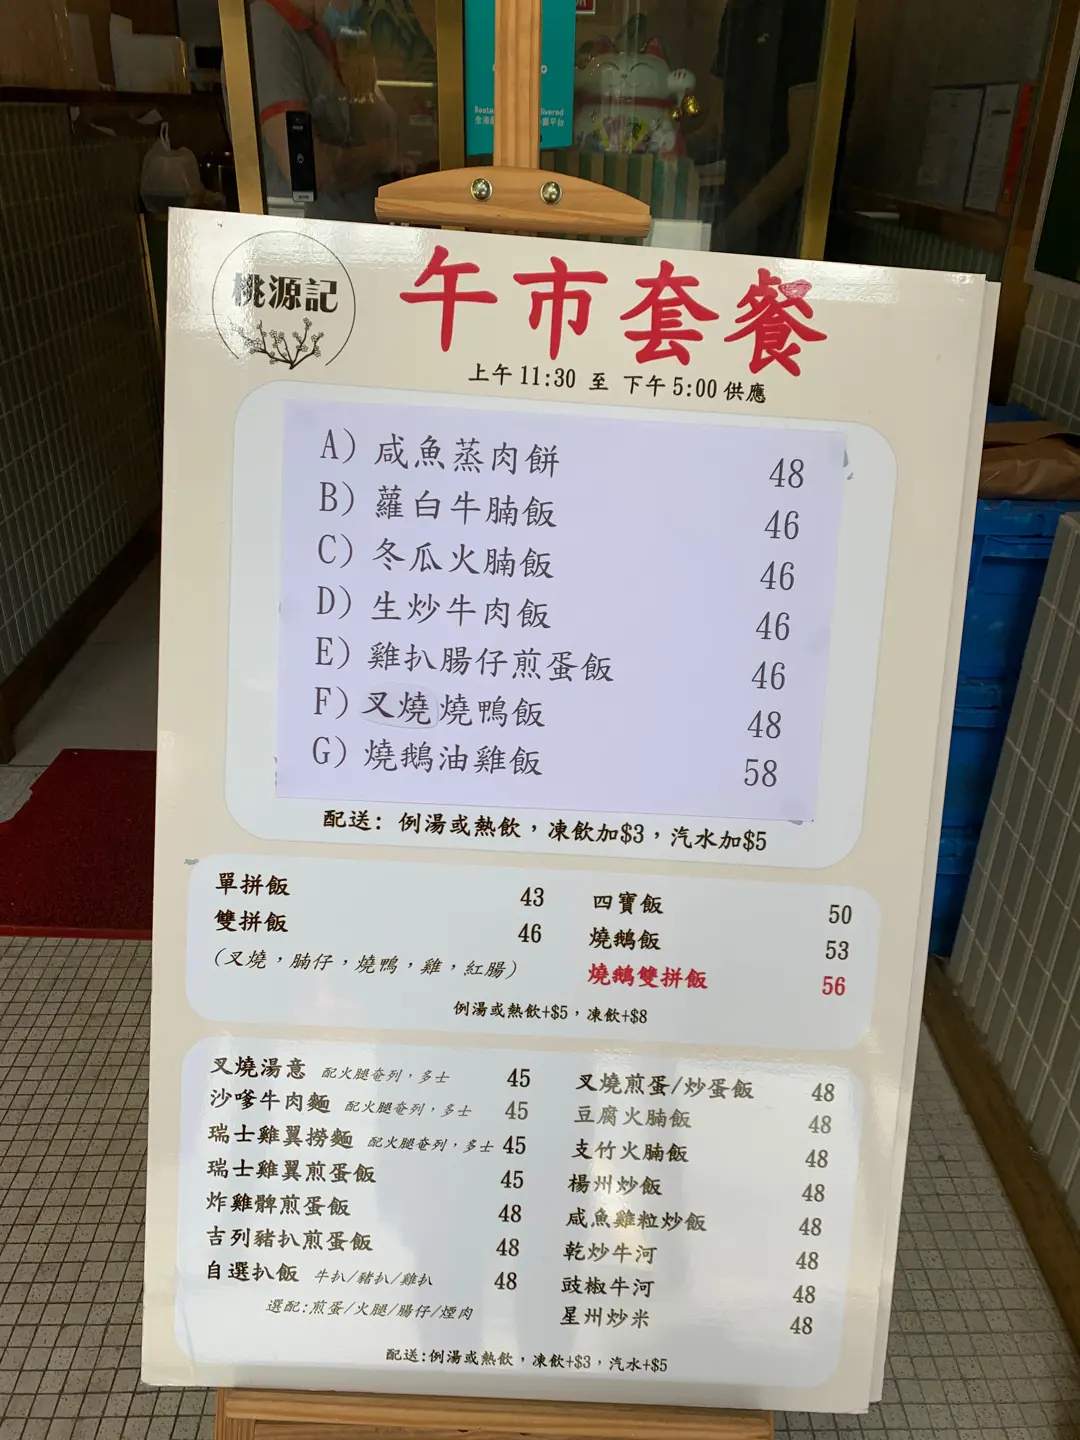 Resta ivered
全港 平台
桃源記
午市套餐
上午 11:30 至 下午 5:00 供應
A) 咸魚蒸肉餅 48
B) 蘿白牛腩飯 46
C) 冬瓜火腩飯 46
D) 生炒牛肉飯 46
E) 雞扒腸仔煎蛋飯 46
F) 叉燒燒鴨飯 48
G) 燒鵝油雞飯 58
配送: 例湯或熱飲，凍飲加$3，汽水加$5
單拼飯 43
雙拼飯 46
(叉燒，腩仔，燒鴨，雞，紅腸)
四寶飯 50
燒鵝飯 53
燒鵝雙拼飯 56
例湯或熱飲+$5，凍飲+$8
叉燒湯意 配火腿奄列，多士 45
沙嗲牛肉麵 配火腿奄列，多士 45
瑞士雞翼撈麵 配火腿奄列，多士 45
瑞士雞翼煎蛋飯 45
炸雞髀煎蛋飯 48
吉列豬扒煎蛋飯 48
自選扒飯 牛扒/豬扒/雞扒 48
選配:煎蛋/火腿/腸仔/煙肉
叉燒煎蛋/炒蛋飯 48
豆腐火腩飯 48
支竹火腩飯 48
楊州炒飯 48
咸魚雞粒炒飯 48
乾炒牛河 48
豉椒牛河 48
星州炒米 48
配送:例湯或熱飲，凍飲+$3，汽水+$5